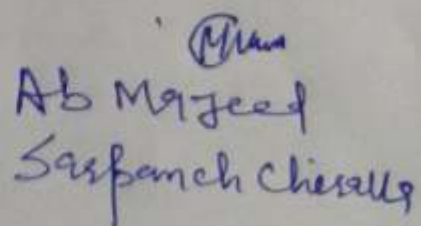 Ab Majeed
Sarpanch Chiralla